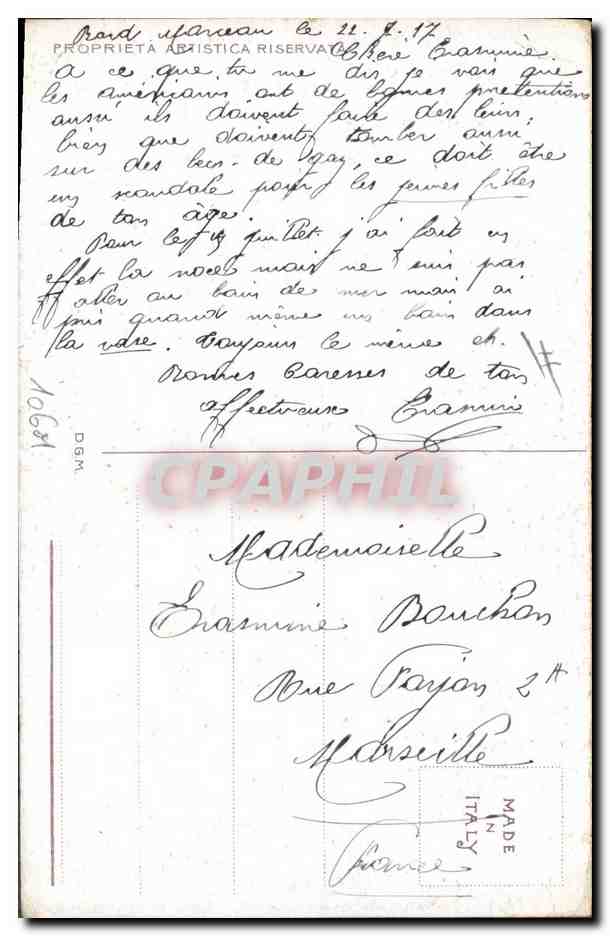 Bard Marceau le 22. 7. 17
PROPRIETÀ ARTISTICA RISERVATA
Chère Erasmine.
A ce que tu me dis je vois que
les américains ont de bonnes prétentions
aussi ils doivent faire des leurs,
bien que doivent tomber aussi
sur des becs-de gaz, ce doit être
un scandale pour les jeunes filles
de ton âge.
Pour le juillet j'ai fait en
effet la noce mais ne suis pas
aller au bain de mer mais ai
pris quand même un bain dans
la vase. Toujours le même
Bonnes Caresses de ton
affectueux Erasmin
1068
D.G.M.
CPAPHIL
Mademoiselle
Erasmine Bouchon
Rue Farjon 2A
Marseille
France
MADE
IN
ITALY